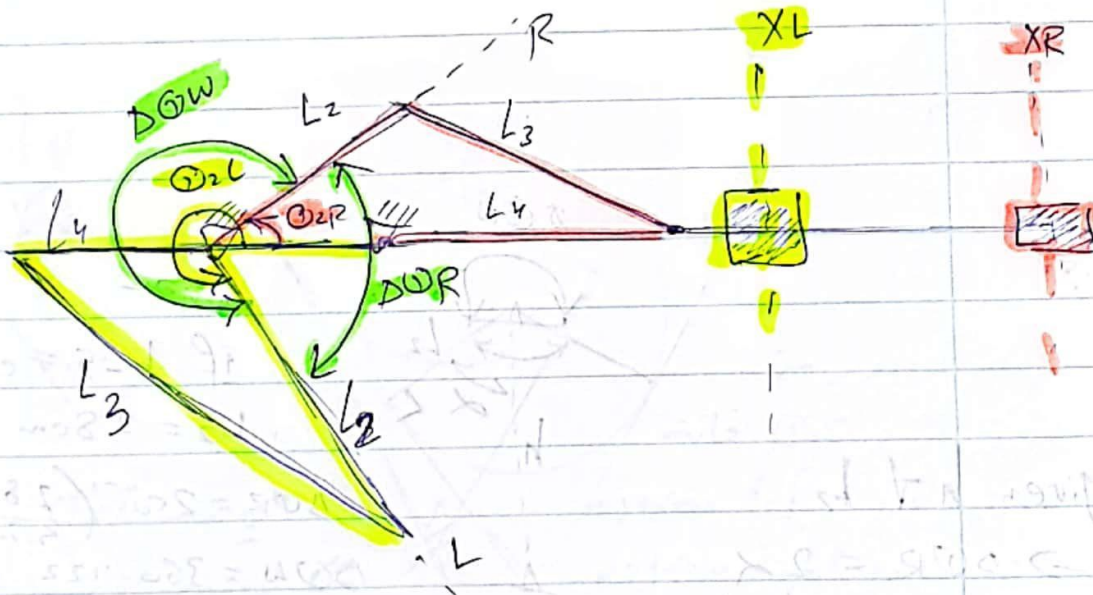 R
XL
XR
DΘW
L2
L3
Θ2L
Θ2R
L4
L4
DΘR
L3
L2
L